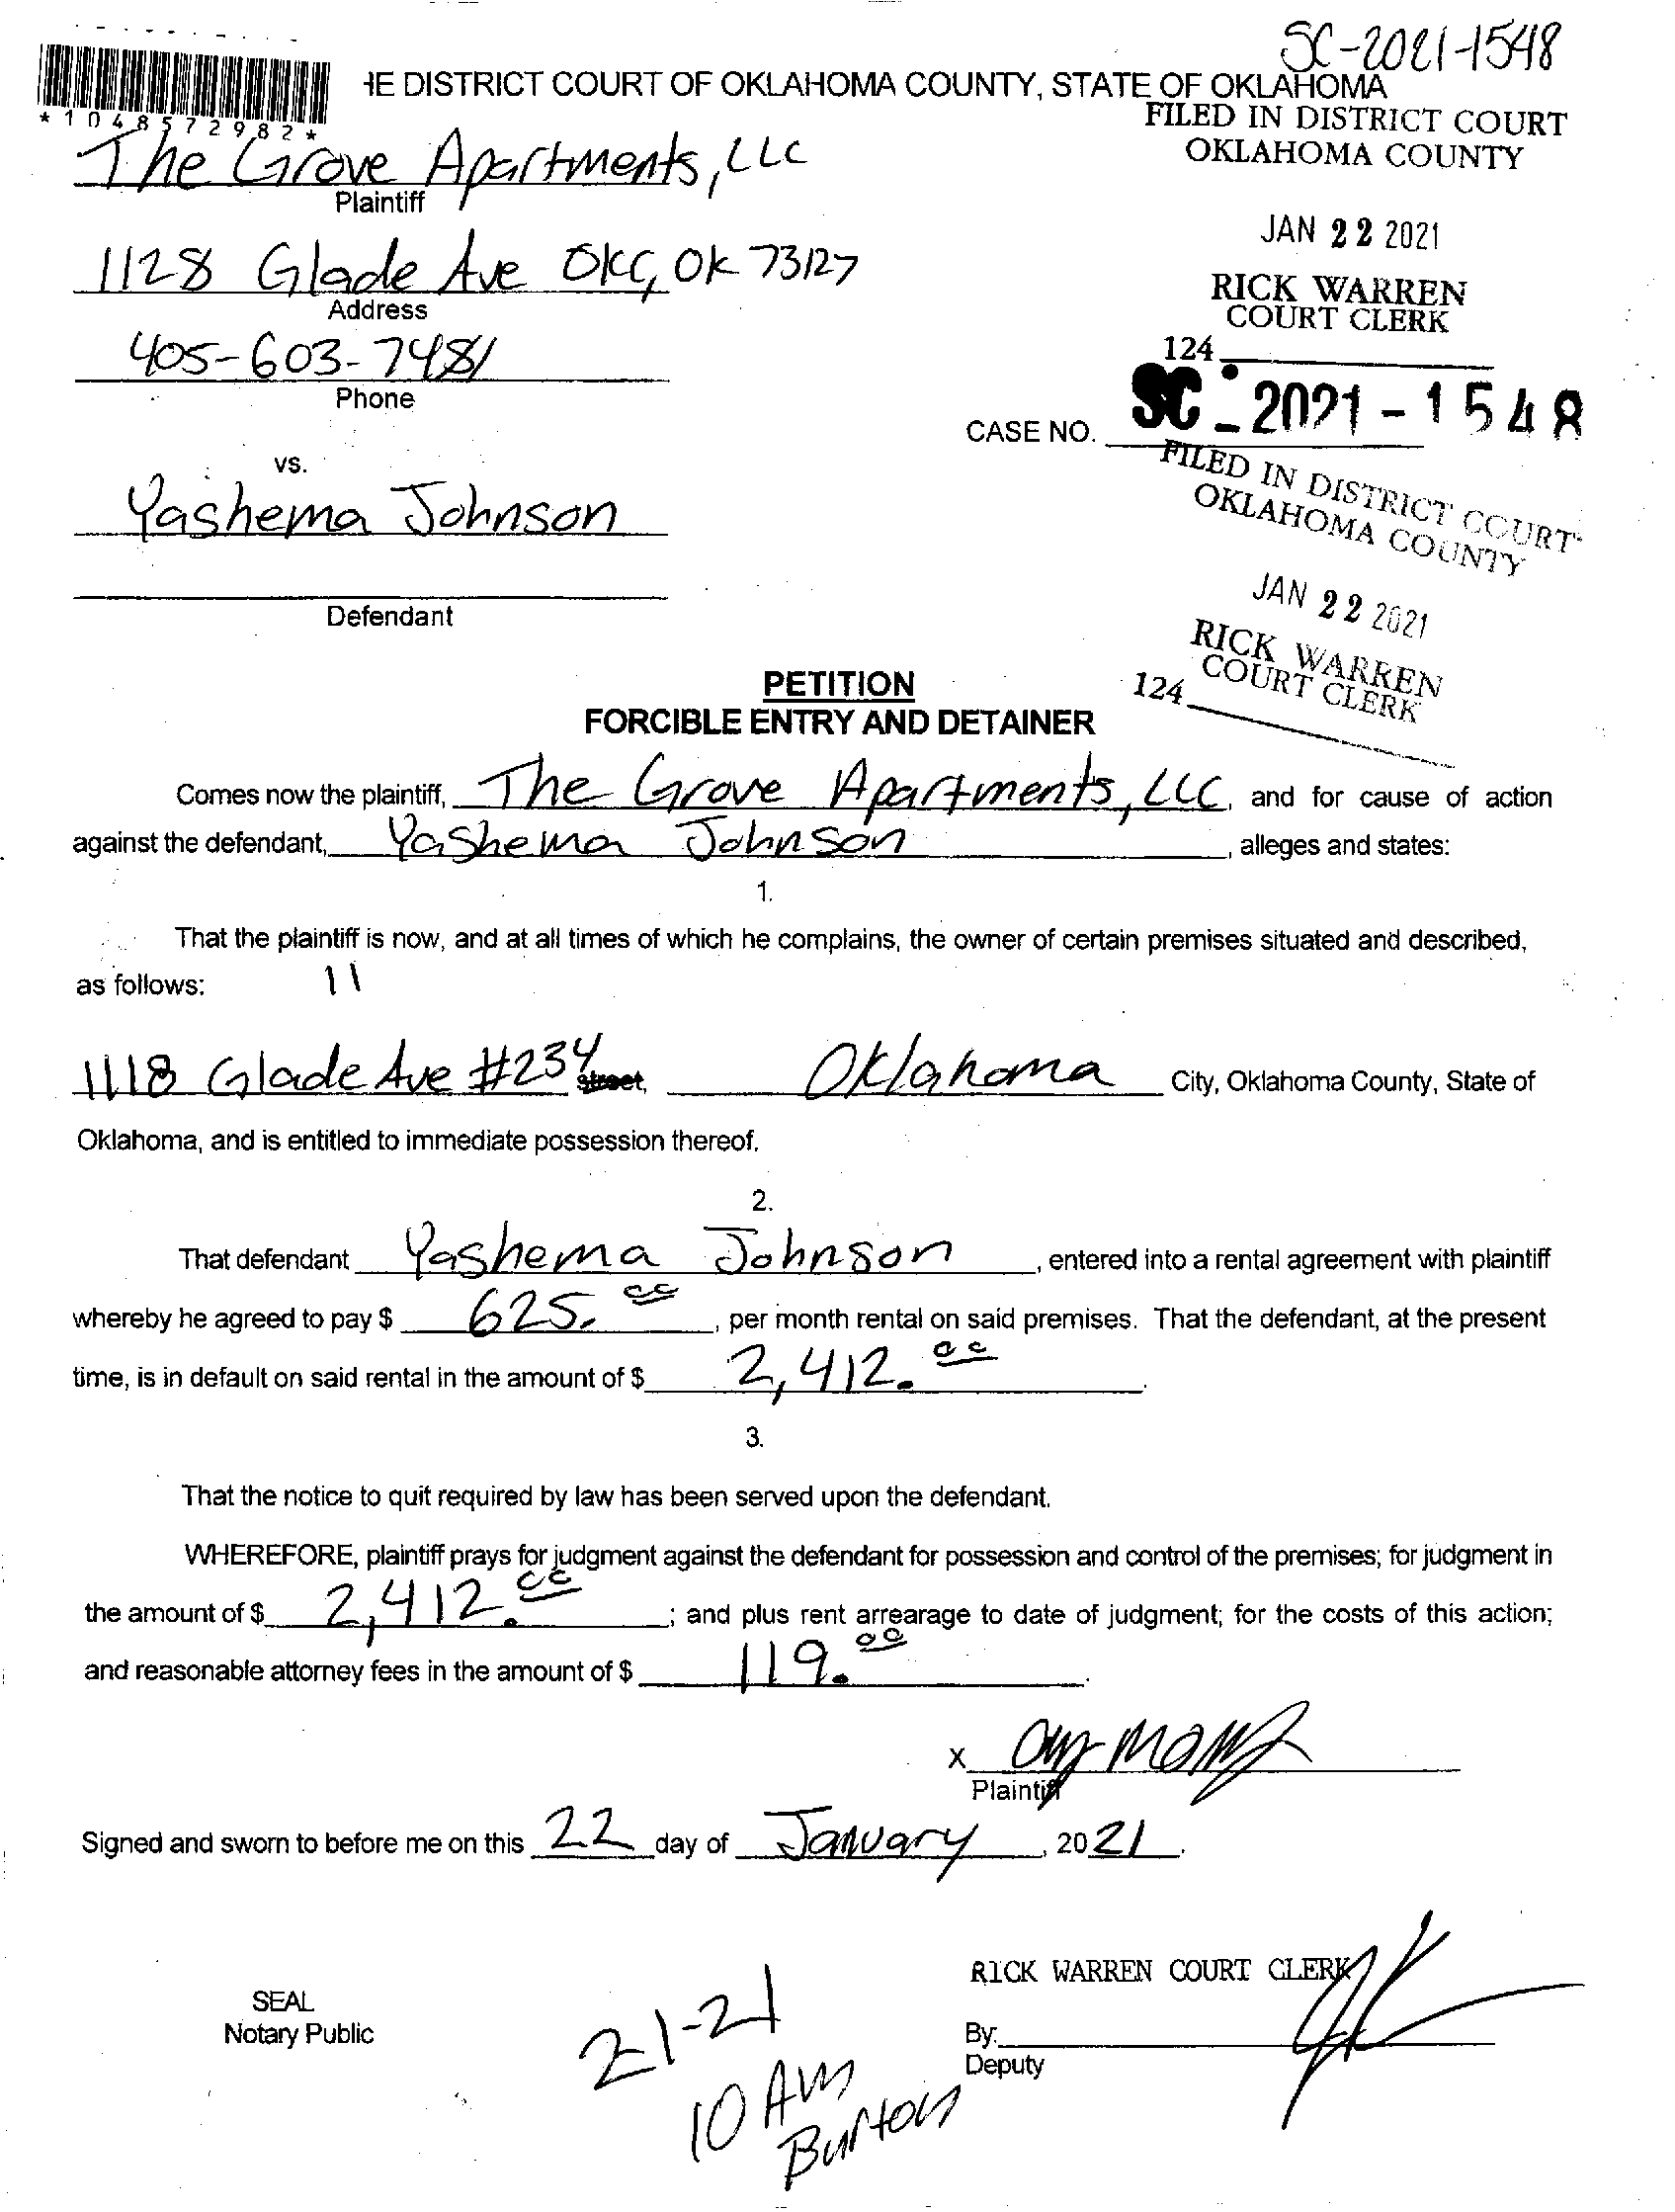 SC-2021-1548
HE DISTRICT COURT OF OKLAHOMA COUNTY, STATE OF OKLAHOMA
*1048572982*
FILED IN DISTRICT COURT
OKLAHOMA COUNTY
The Grove Apartments, LLC
Plaintiff
JAN 22 2021
1128 Glade Ave OKC, OK 73127
Address
RICK WARREN
COURT CLERK
124
405-603-7481
Phone
CASE NO. SC-2021-1548
vs.
FILED IN DISTRICT COURT
OKLAHOMA COUNTY
Yashema Johnson
JAN 22 2021
Defendant
RICK WARREN
COURT CLERK
124
PETITION
FORCIBLE ENTRY AND DETAINER
Comes now the plaintiff, The Grove Apartments, LLC, and for cause of action
against the defendant, Yashema Johnson, alleges and states:
1.
That the plaintiff is now, and at all times of which he complains, the owner of certain premises situated and described,
as follows: 11
1118 Glade Ave #234 street, Oklahoma City, Oklahoma County, State of
Oklahoma, and is entitled to immediate possession thereof.
2.
That defendant Yashema Johnson, entered into a rental agreement with plaintiff
whereby he agreed to pay $ 625.00, per month rental on said premises. That the defendant, at the present
time, is in default on said rental in the amount of $ 2,412.00.
3.
That the notice to quit required by law has been served upon the defendant.
WHEREFORE, plaintiff prays for judgment against the defendant for possession and control of the premises; for judgment in
the amount of $ 2,412.00; and plus rent arrearage to date of judgment; for the costs of this action;
and reasonable attorney fees in the amount of $ 119.00.
X
Plaintiff
Signed and sworn to before me on this 22 day of January, 2021.
RICK WARREN COURT CLERK
SEAL
Notary Public
By:
Deputy
2-1-21
10 AM
Burton